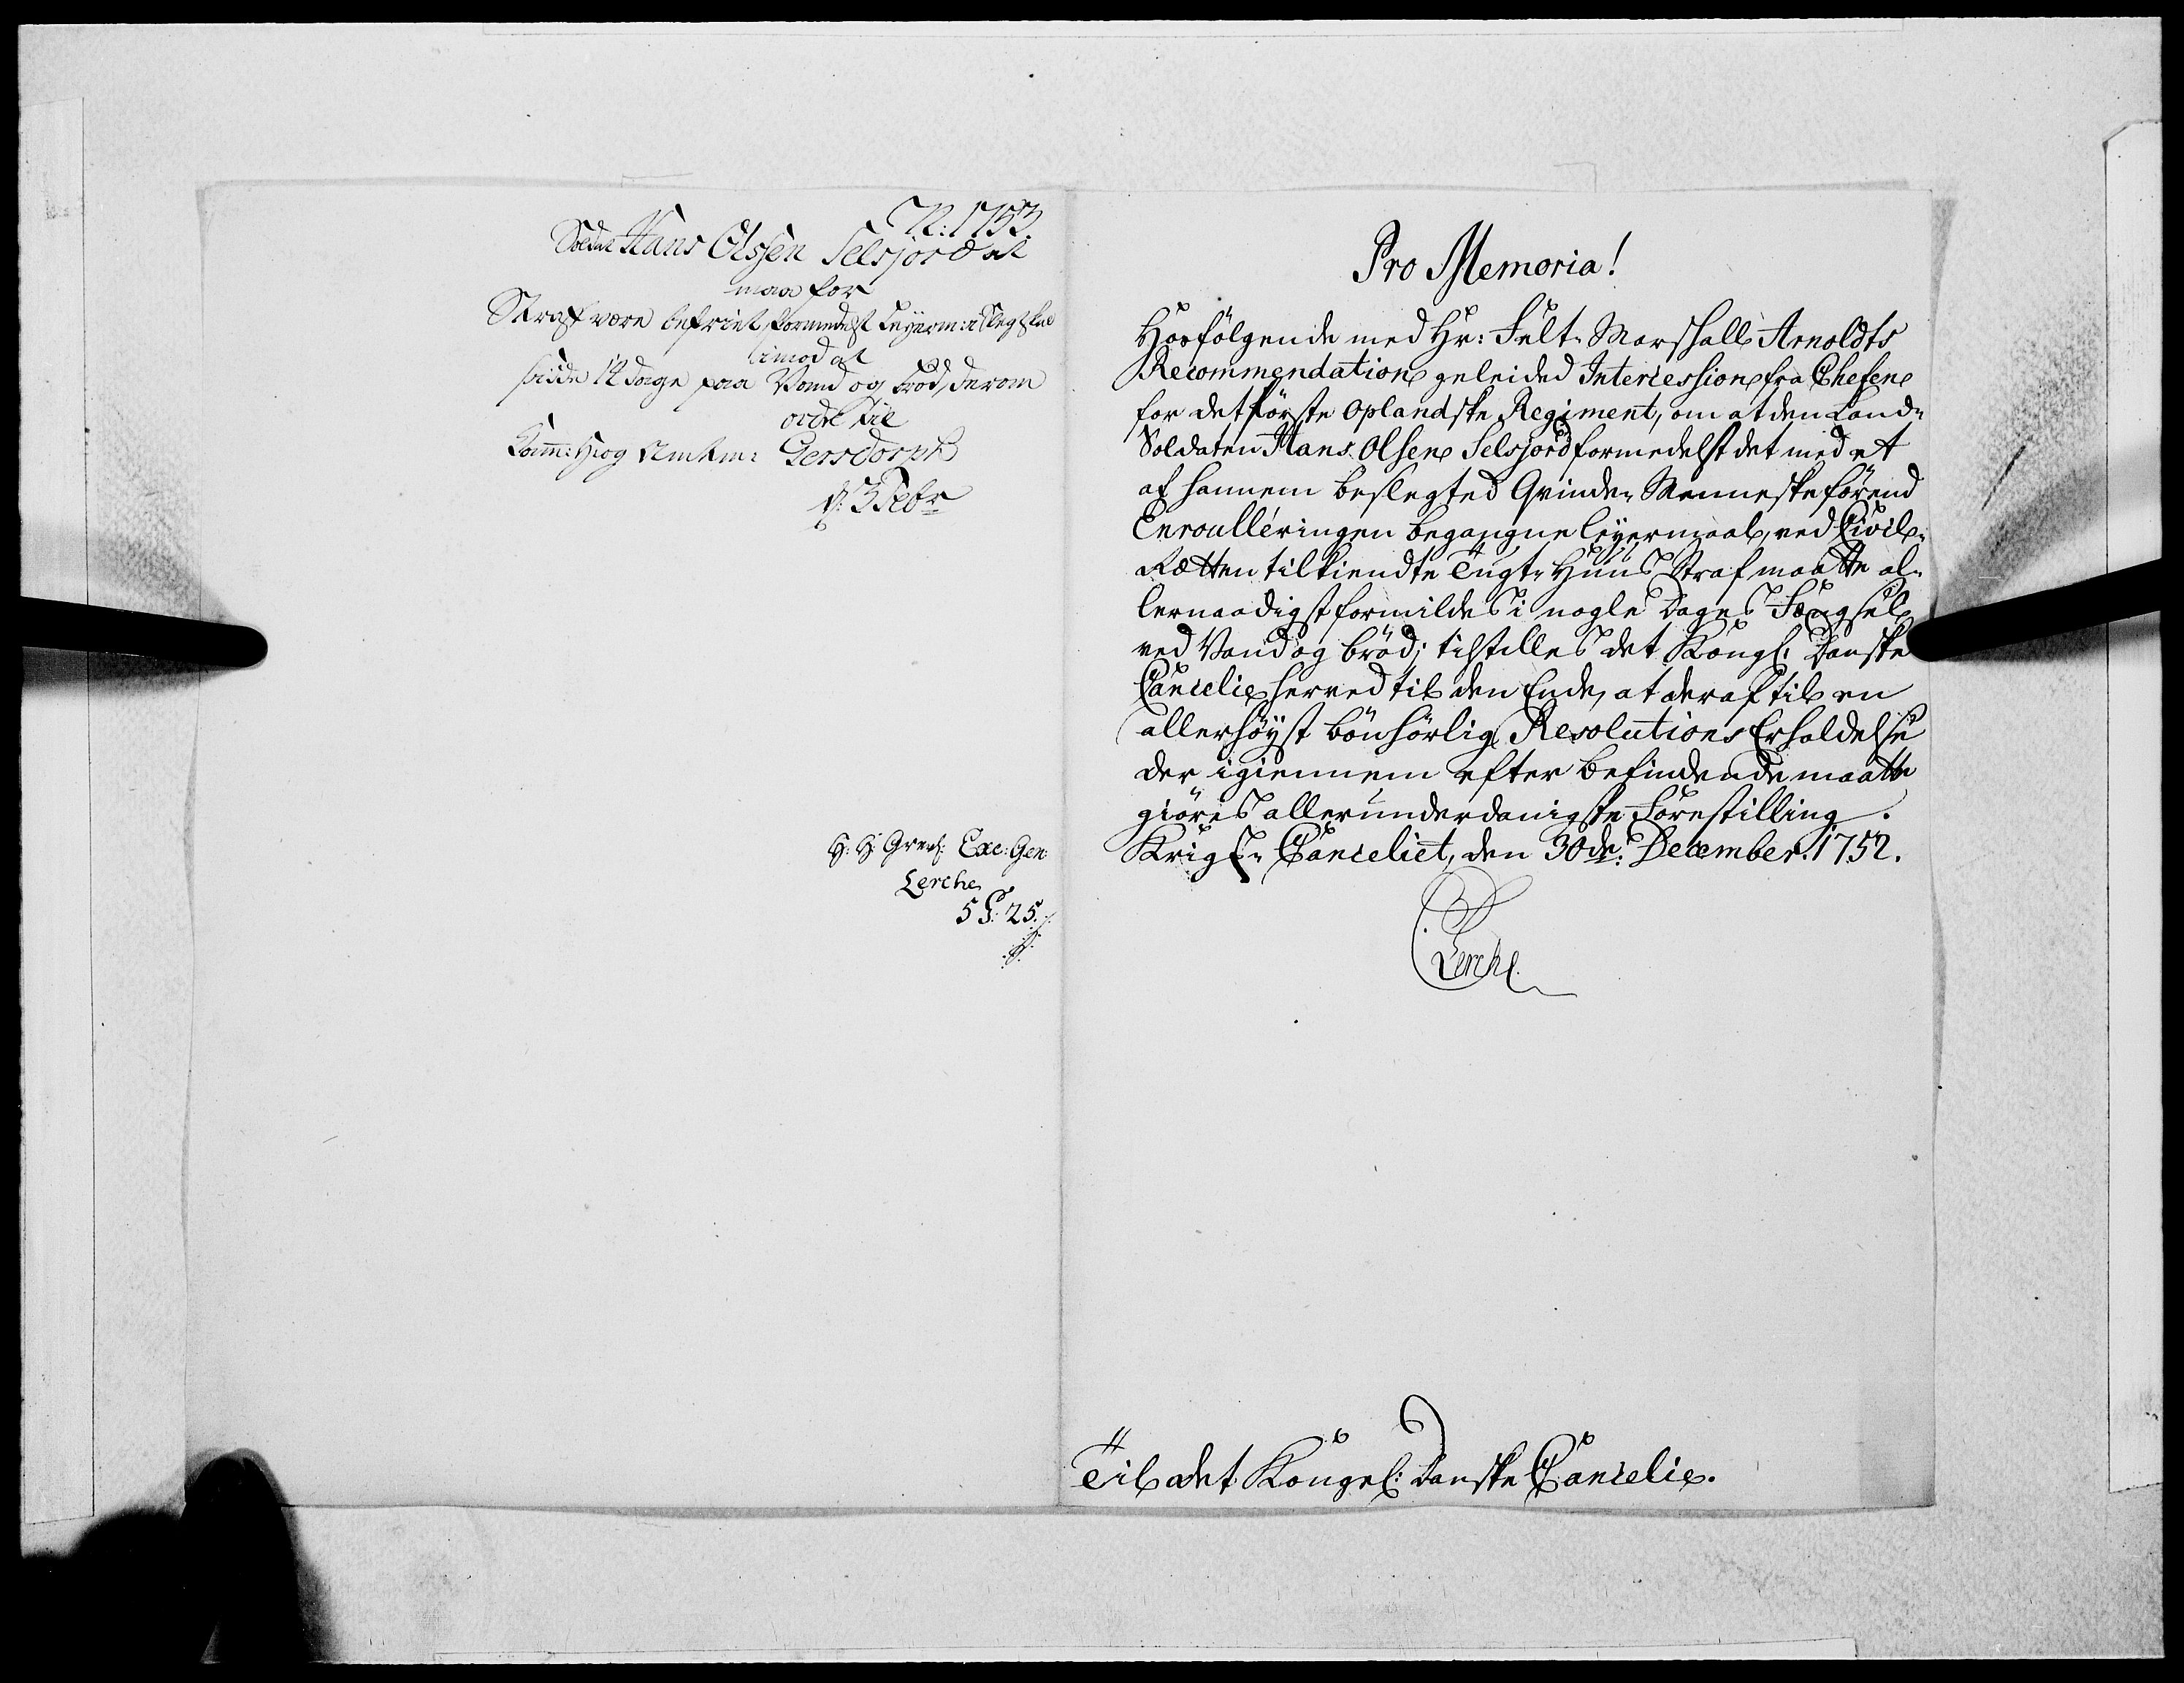 N: 1753.
Soldat Hans Olssen Selsjord at
maa for
Straf være befriet, formedelst Leyerm: i Slegtskab
imod at
sidde 14 dage paa Vand og Brød, derom
ordre til
Cam: Hr og Amtm: Gersdorph
d: 3 Febr
H: H: Grevl: Exc: Gen:
Lerche
Pro Memoria!
Hosfölgende med Hr: Felt-Marshall Arnoldts
Recommendation geleided Intercession fra Chefen
for det förste Oplandske Regiment, om at den Land-
Soldaten Hans Olsen Selsjord formedelst det med et
af hannem beslegted Qvinde-Menneske förend
Enroulléringen begangne leyermaal, ved Civil-
Rætten tilkiendte Tugt-Huus Straf maatte al-
lernaadigst formildes i nogle Dages Fængsel
ved Vand og bröd; tilstilles det Kongl: Danske
Cancelie herved til den Ende, at deraf til en
allerhöyst bönhörlig Resolutions Erholdelse
der igiennem efter befindende maatte
giöres allerunderdanigste Forestilling.
Krigs-Canceliet, den 30de: December. 1752.
Lerche.
Til det Kongel: Danske Cancelie.